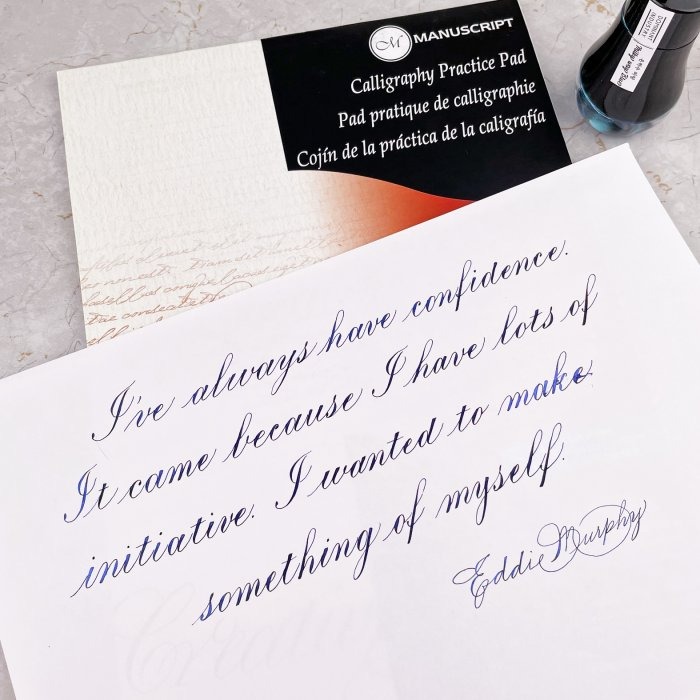 M MANUSCRIPT
Calligraphy Practice Pad
Pad pratique de calligraphie
Cojín de la práctica de la caligrafía
DOMINANT
INDUSTRY
I've always have confidence.
It came because I have lots of
initiative. I wanted to make
something of myself.
Eddie Murphy